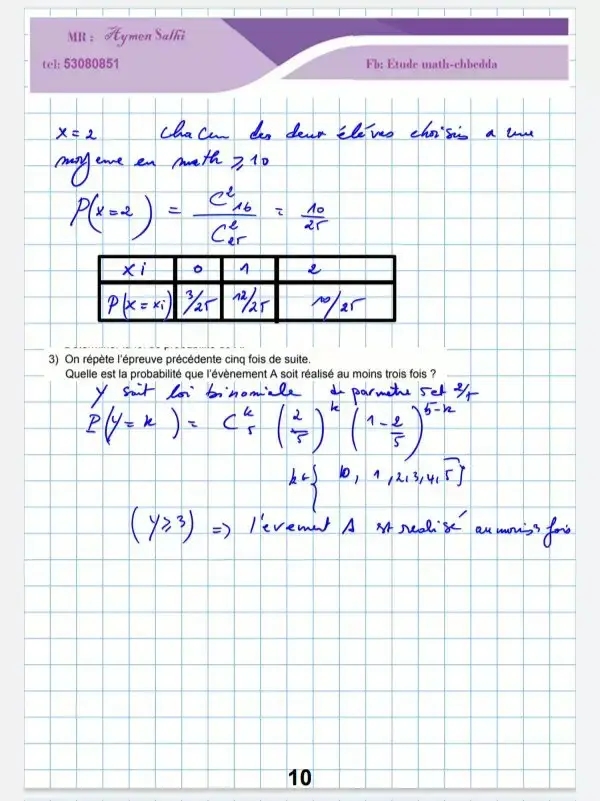 MR : Aymen Salhi
tel: 53080851
Fb: Etude math-chbedda
x = 2 chacun des deux élèves choisis a une
moyenne en math ⩾ 10
P(x=2) = C²₁₆ / C²₂₅ = 10/25
xi 0 1 2
P(x = xi) 3/25 12/25 10/25
3) On répète l'épreuve précédente cinq fois de suite.
Quelle est la probabilité que l'évènement A soit réalisé au moins trois fois ?
Y suit loi binomiale de parmetre 5 et 2/5
P(Y = k) = C^k_5 (2/5)^k (1 - 2/5)^(5-k)
k ∈ { 0, 1, 2, 3, 4, 5 }
(Y ⩾ 3) => l'evement A est realisé au moins 3 fois
10